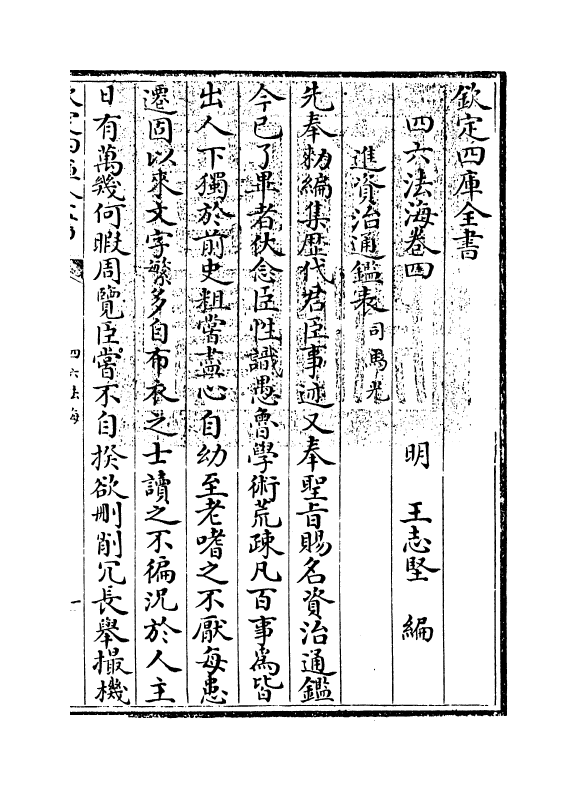 欽定四庫全書
四六法海卷四　明　王志堅　編
進資治通鑑表司馬光
先奉勑編集歴代君臣事迹又奉聖旨賜名資治通鑑
今已了畢者伏念臣性識愚魯學術荒疎凡百事為皆
出人下獨於前史粗嘗盡心自幼至老嗜之不厭每患
遷固以來文字繁多自布衣之士讀之不徧況於人主
日有萬幾何暇周覽臣嘗不自揆欲刪削冗長舉撮機
四六法海
一